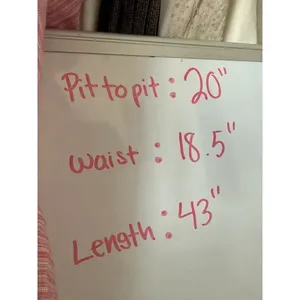 Pit to pit : 20"
Waist : 18.5"
Length : 43"